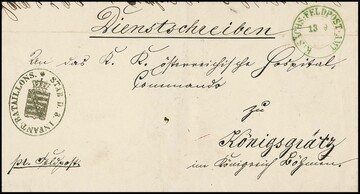 Dienstschreiben
FELDPOST-AMT
13
STAB D. 2. INFANT. BATAILLONS.
An das K. K. österreichische Hospital-
Commando
zu
Königsgrätz
im Königreich Böhmen.
pr. Feldpost.